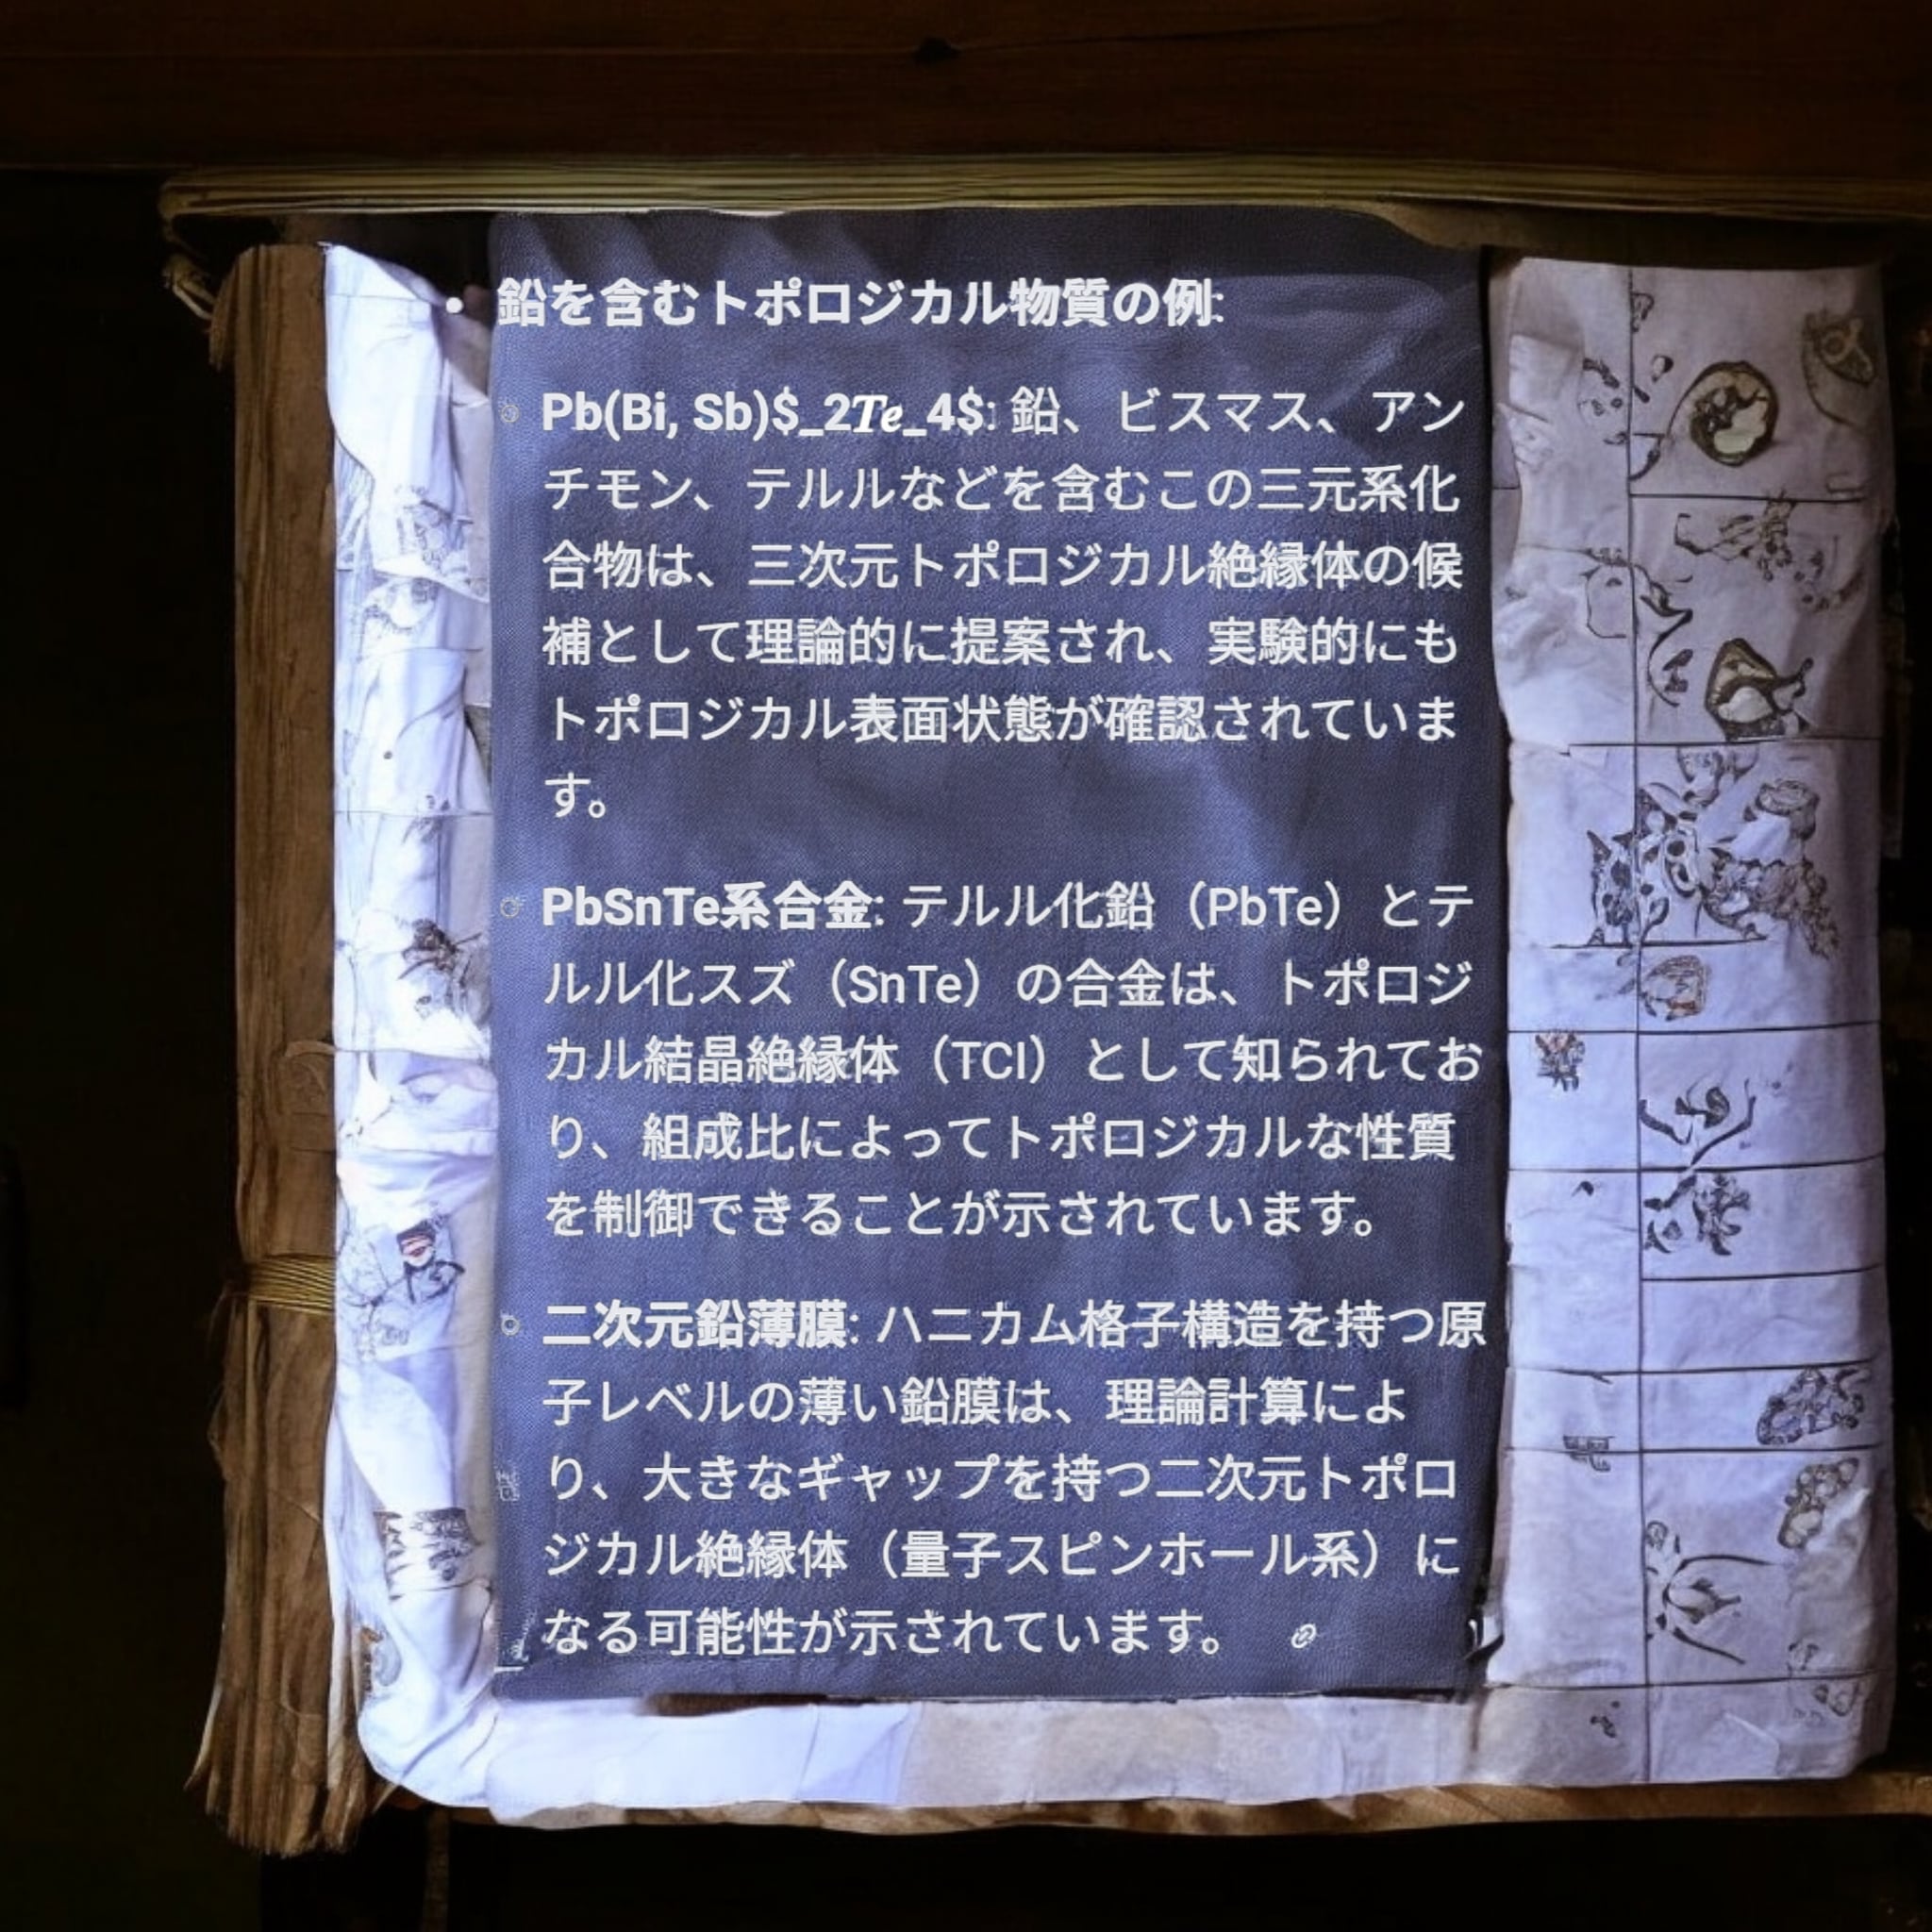 • 鉛を含むトポロジカル物質の例:
Pb(Bi, Sb)$_2Te_4$: 鉛、ビスマス、アン
チモン、テルルなどを含むこの三元系化
合物は、三次元トポロジカル絶縁体の候
補として理論的に提案され、実験的にも
トポロジカル表面状態が確認されていま
す。
PbSnTe系合金: テルル化鉛（PbTe）とテ
ルル化スズ（SnTe）の合金は、トポロジ
カル結晶絶縁体（TCI）として知られてお
り、組成比によってトポロジカルな性質
を制御できることが示されています。
二次元鉛薄膜: ハニカム格子構造を持つ原
子レベルの薄い鉛膜は、理論計算によ
り、大きなギャップを持つ二次元トポロ
ジカル絶縁体（量子スピンホール系）に
なる可能性が示されています。